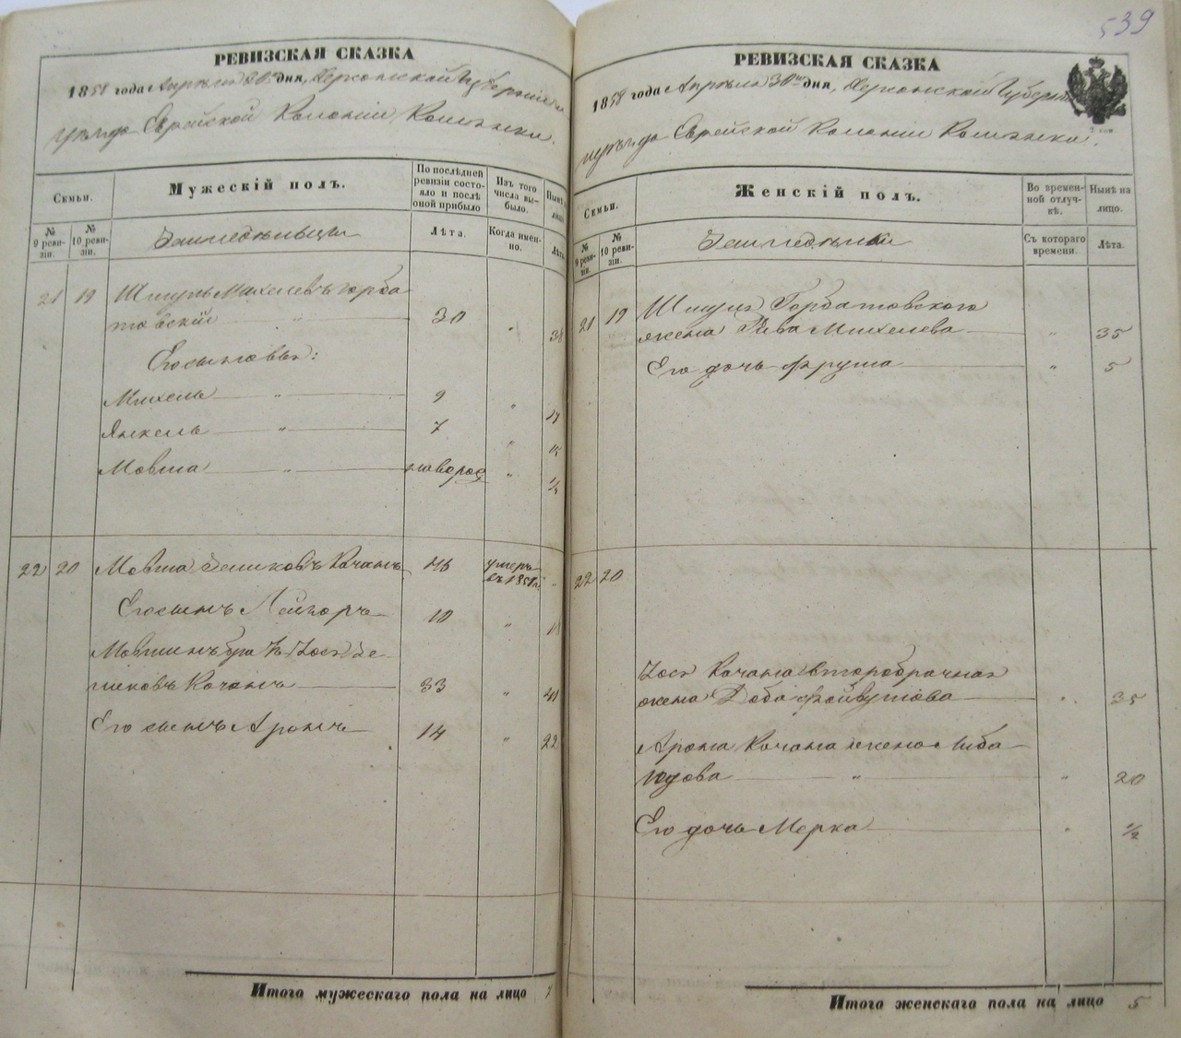 РЕВИЗСКАЯ СКАЗКА
1858 года Апреля 30го дня, Херсонской Губерніи
уезда Еврейской Колоніи
Семьи.
Мужескій полъ.
По последней ревизіи состояло и после оной прибыло
Изъ того числа выбыло.
Ныне на лицо
№ 9 ревизіи.
№ 10 ревизіи.
Земледельцы
Лѣта.
Когда именно.
Лѣта
21 19 Шмуль Михелевъ Горба
товскій 30 " 38
Его сыновья:
Михель " 9 " 17
Янкель " 7 " 15
Мовша " новорож " ½
22 20 Мовша Зеликовъ Качанъ 46 умеръ въ 1851
Его сынъ Лейзоръ 10 " 18
Мовшинъ братъ Іось Зе-
ликовъ Качанъ 33 " 41
Его сынъ Аронъ 14 " 22
Итого мужескаго пола на лицо 7
539
РЕВИЗСКАЯ СКАЗКА
1858 года Апреля 30го дня, Херсонской Губерніи
уезда Еврейской Колоніи
Семьи.
Женскій полъ.
Во временной отлучкѣ.
Нынѣ на лицо.
№ 9 ревизіи.
№ 10 ревизіи.
Земледелки
Съ котораго времени.
Лѣта.
21 19 Шмуля Горбатовского
жена Рива Михелева " 35
Его дочь Фрума " 5
22 20
Іося Качана второбрачная
жена Доба Файвушова " 35
Арона Качана жена Либа
Юдова " " 20
Его дочь Мерка " ½
Итого женскаго пола на лицо 5